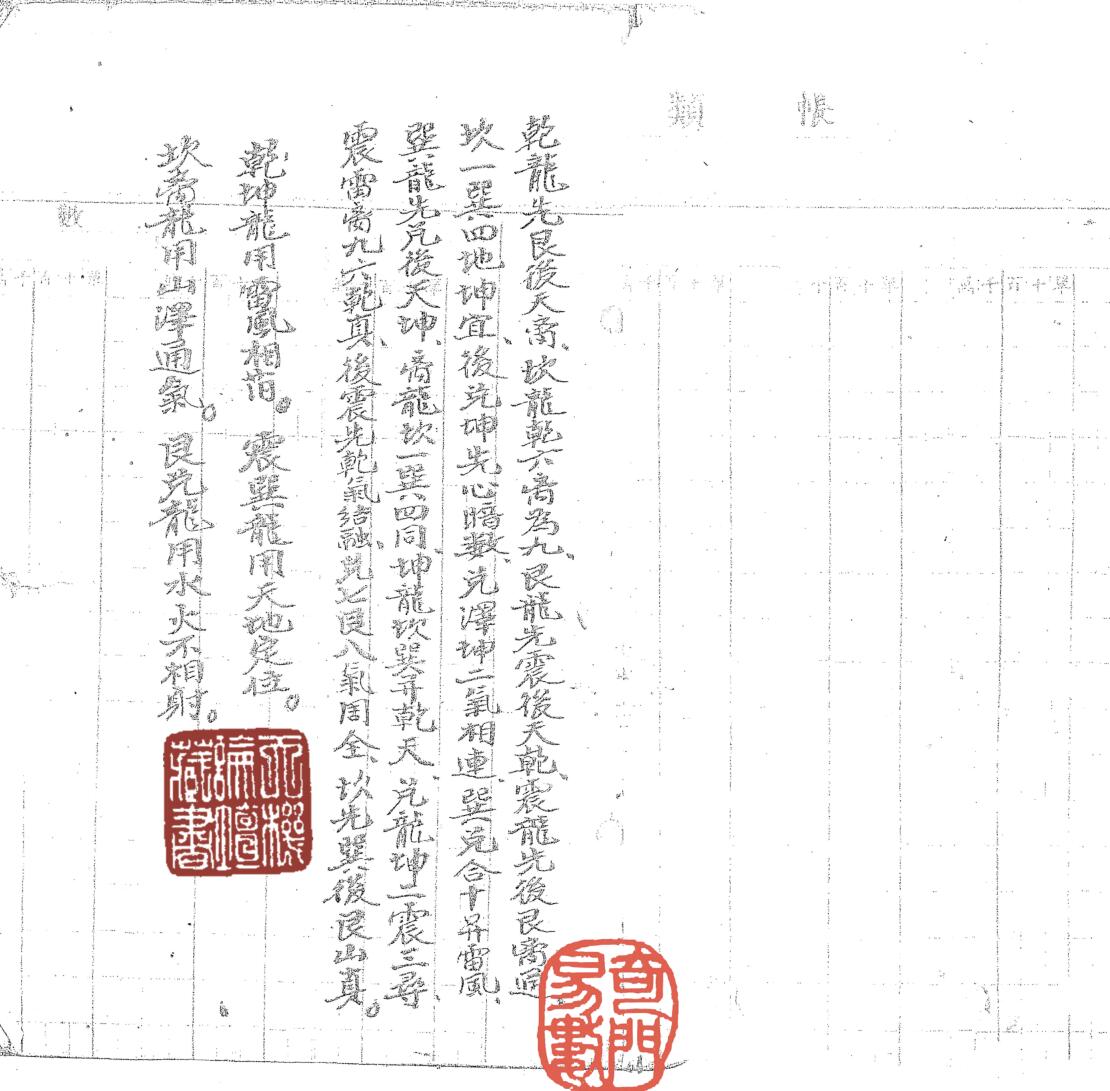 帳類
乾龍先艮後天离、坎龍乾六离為九、艮龍先震後天乾、震龍先後艮离通、
坎一巽四地坤宜、後兑坤先心暗数、兑澤坤二氣相連、巽兑合十昇雷風、
巽龍先兑後天坤、离龍坎一巽四同、坤龍坎巽昇乾天、兑龍坤二震三尋、
震雷离九六乾真、後震先乾氣結融、兑七艮八氣周全、坎先巽後艮山真。
乾坤龍用雷風相荀。震巽龍用天地定位。
坎离龍用山澤通氣。艮兑龍用水火不相射。
數
萬千百十單
奇門易數
玄機論壇藏書